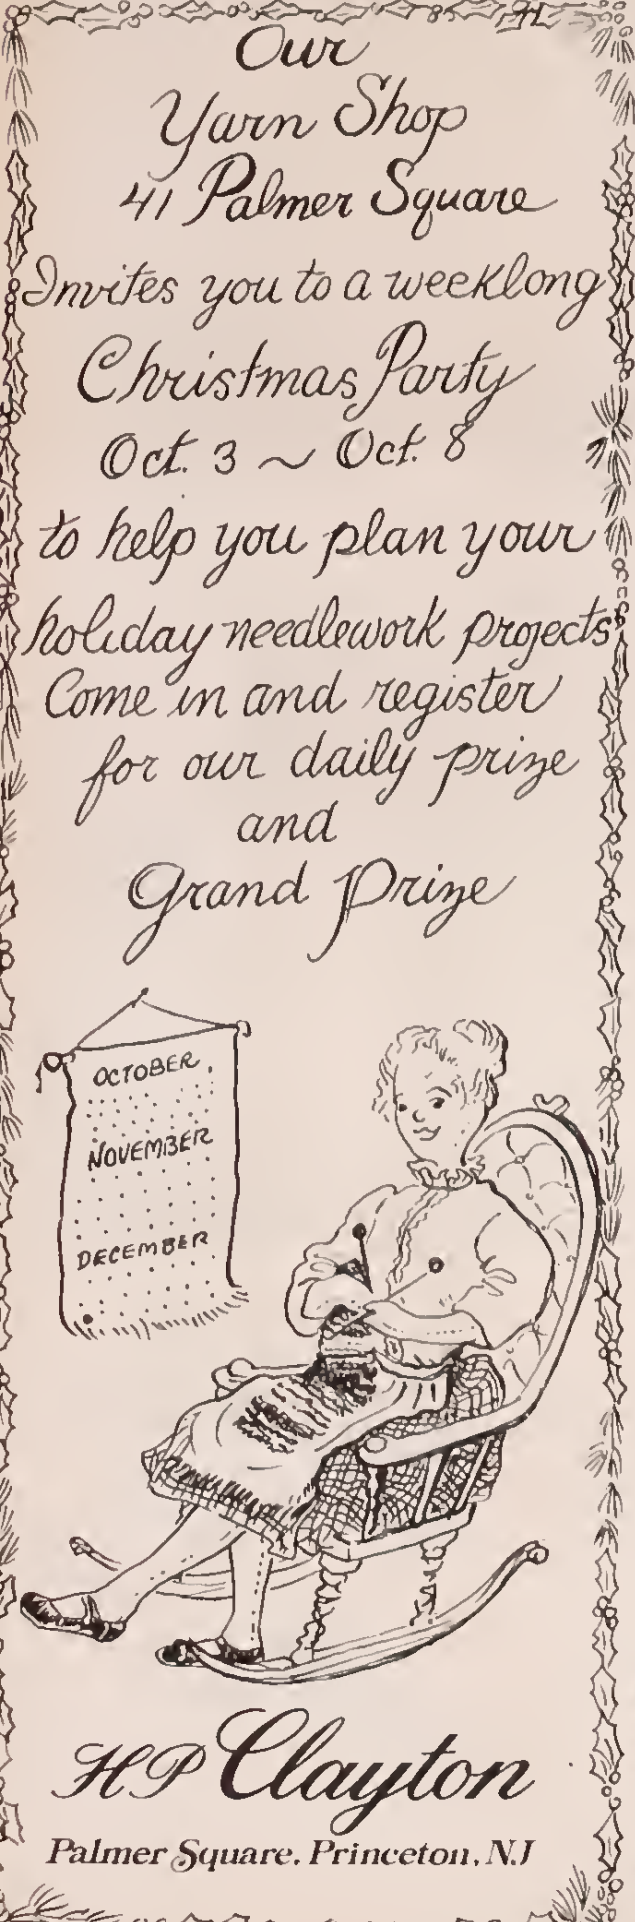 Our
Yarn Shop
41 Palmer Square
Invites you to a weeklong
Christmas Party
Oct. 3 ~ Oct. 8
to help you plan your
holiday needlework projects
Come in and register
for our daily prize
and
Grand Prize
OCTOBER
NOVEMBER
DECEMBER
HP Clayton
Palmer Square, Princeton, NJ